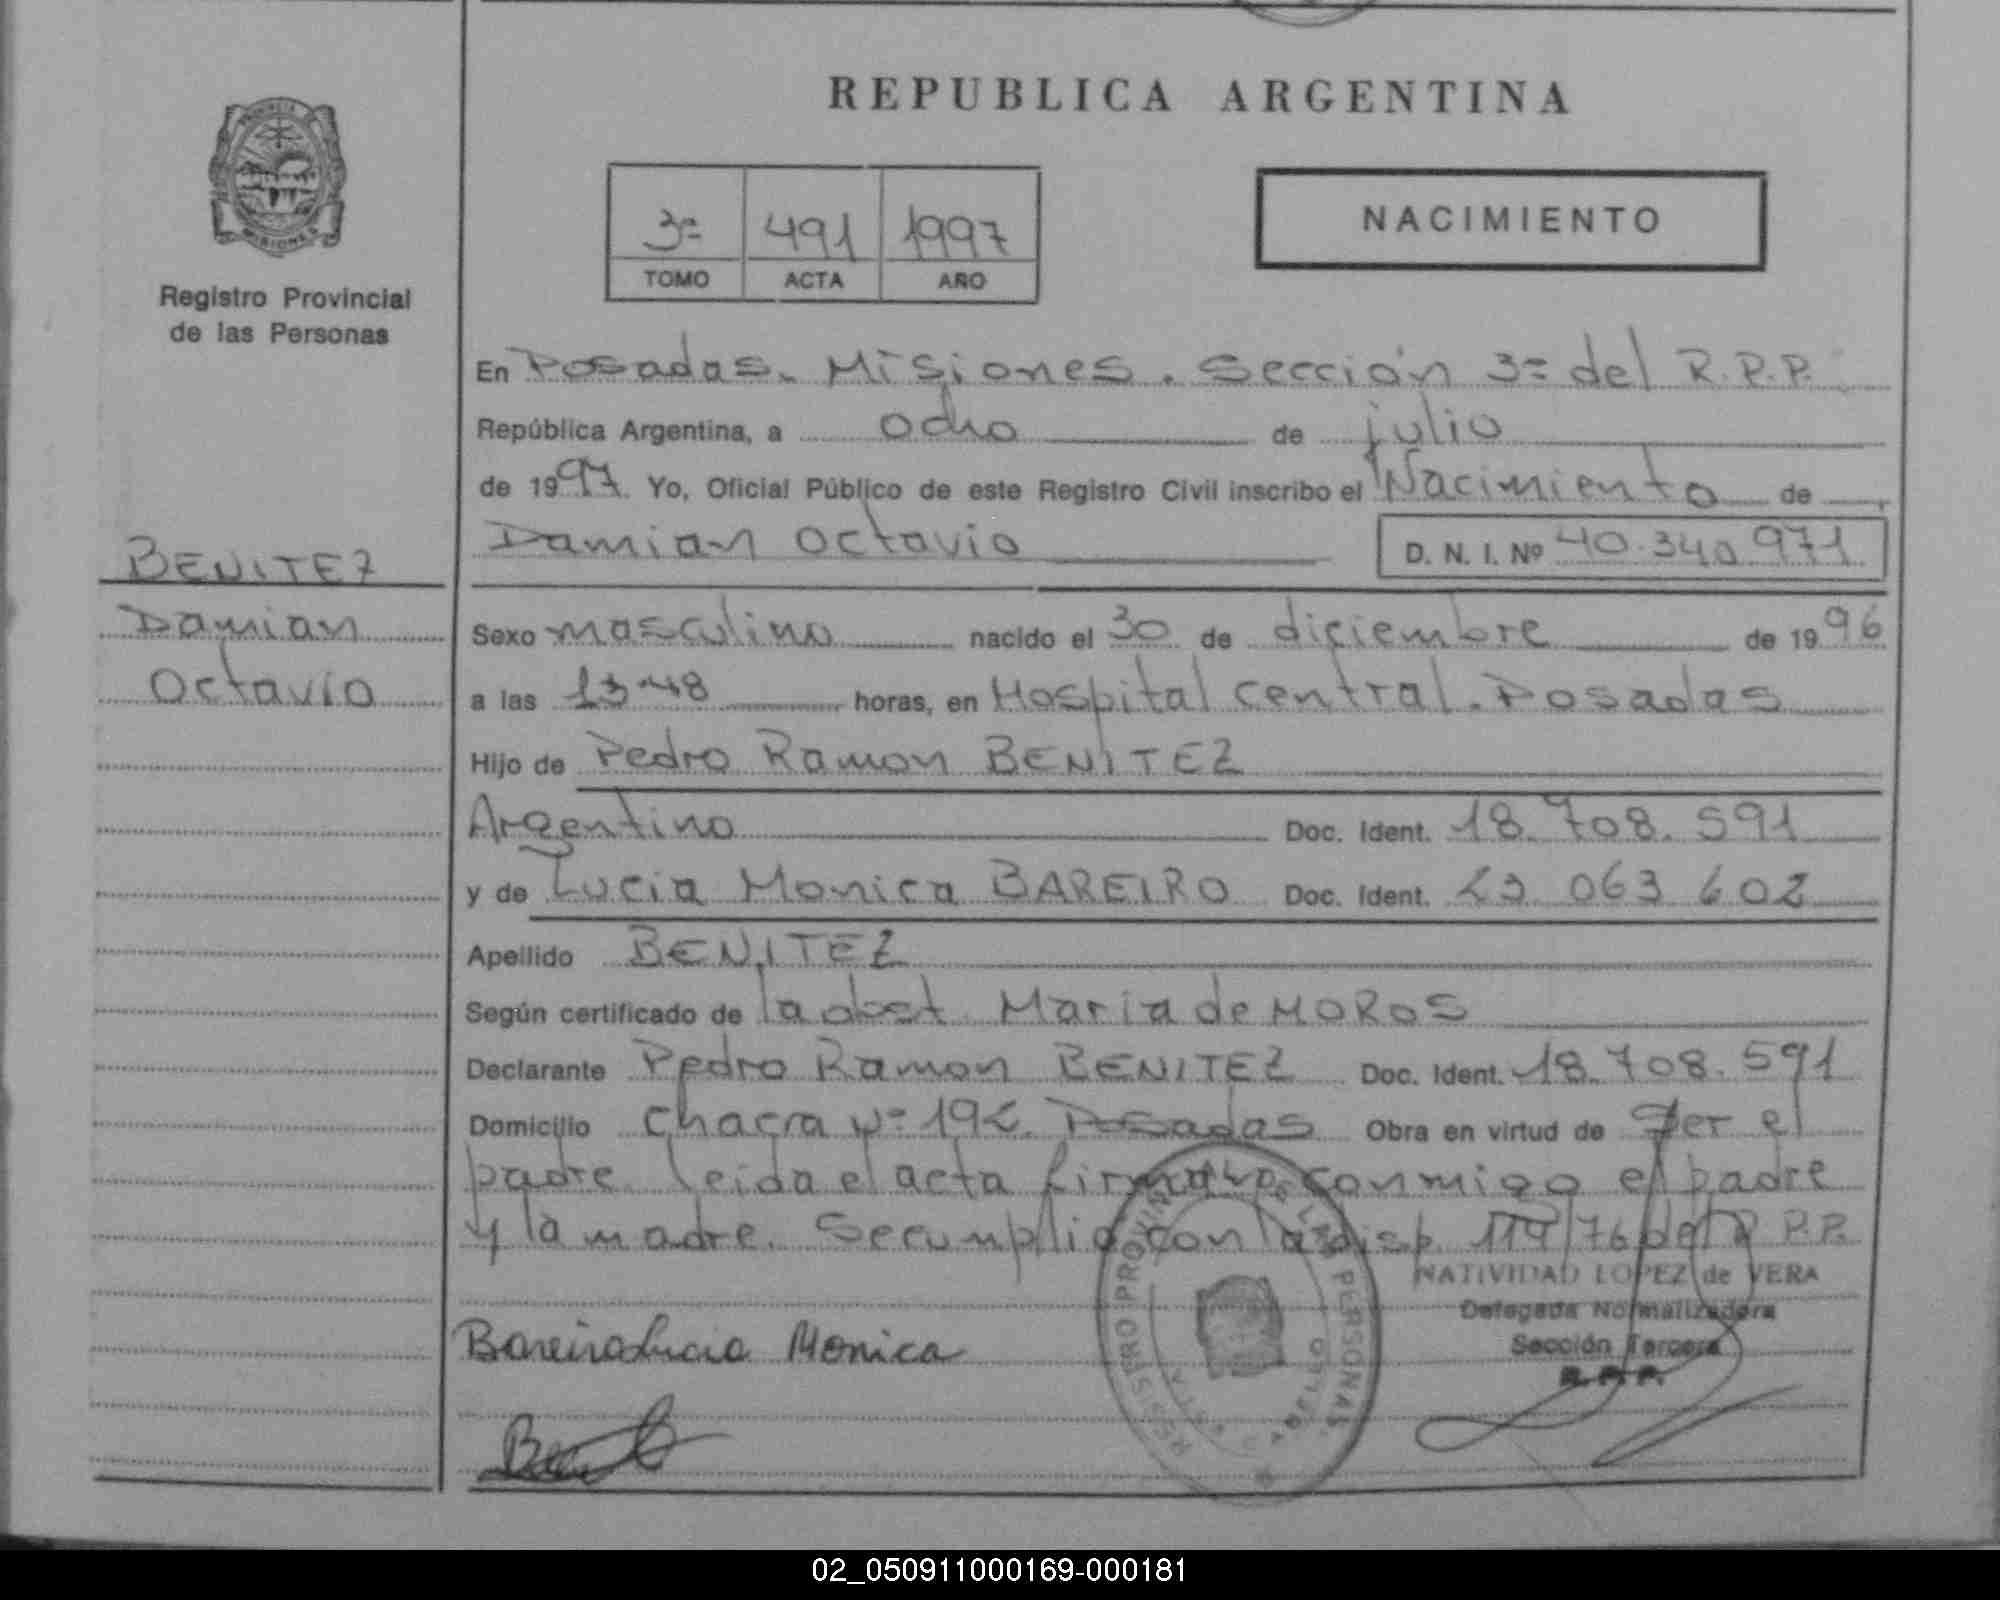 REPUBLICA ARGENTINA
PROVINCIA
MISIONES
Registro Provincial
de las Personas
3ª 491 1997
TOMO ACTA AÑO
NACIMIENTO
En Posadas. Misiones. Sección 3ª del R.P.P.
República Argentina, a ocho de julio
de 1997. Yo, Oficial Público de este Registro Civil inscribo el Nacimiento de
Damian Octavio D. N. I. Nº 40.340.971
BENITEZ
Damian
Octavio
Sexo masculino nacido el 30 de diciembre de 1996
a las 13:48 horas, en Hospital central. Posadas
Hijo de Pedro Ramon BENITEZ
Argentino Doc. Ident. 18.708.591
y de Lucia Monica BAREIRO Doc. Ident. 063 602
Apellido BENITEZ
Según certificado de la obst. Maria de MOROS
Declarante Pedro Ramon BENITEZ Doc. Ident. 18.708.591
Domicilio Chacra Nº 192. Posadas Obra en virtud de ser el
padre. leida el acta conmigo el padre
y la madre. Se cumplio con la disp. 119/76 del R.P.P.
NATIVIDAD LOPEZ de VERA
Delegada Normalizadora
Sección Tercera
R.P.P.
REGISTRO PROVINCIAL DE LAS PERSONAS
Bareiro Lucia Monica
02_050911000169-000181